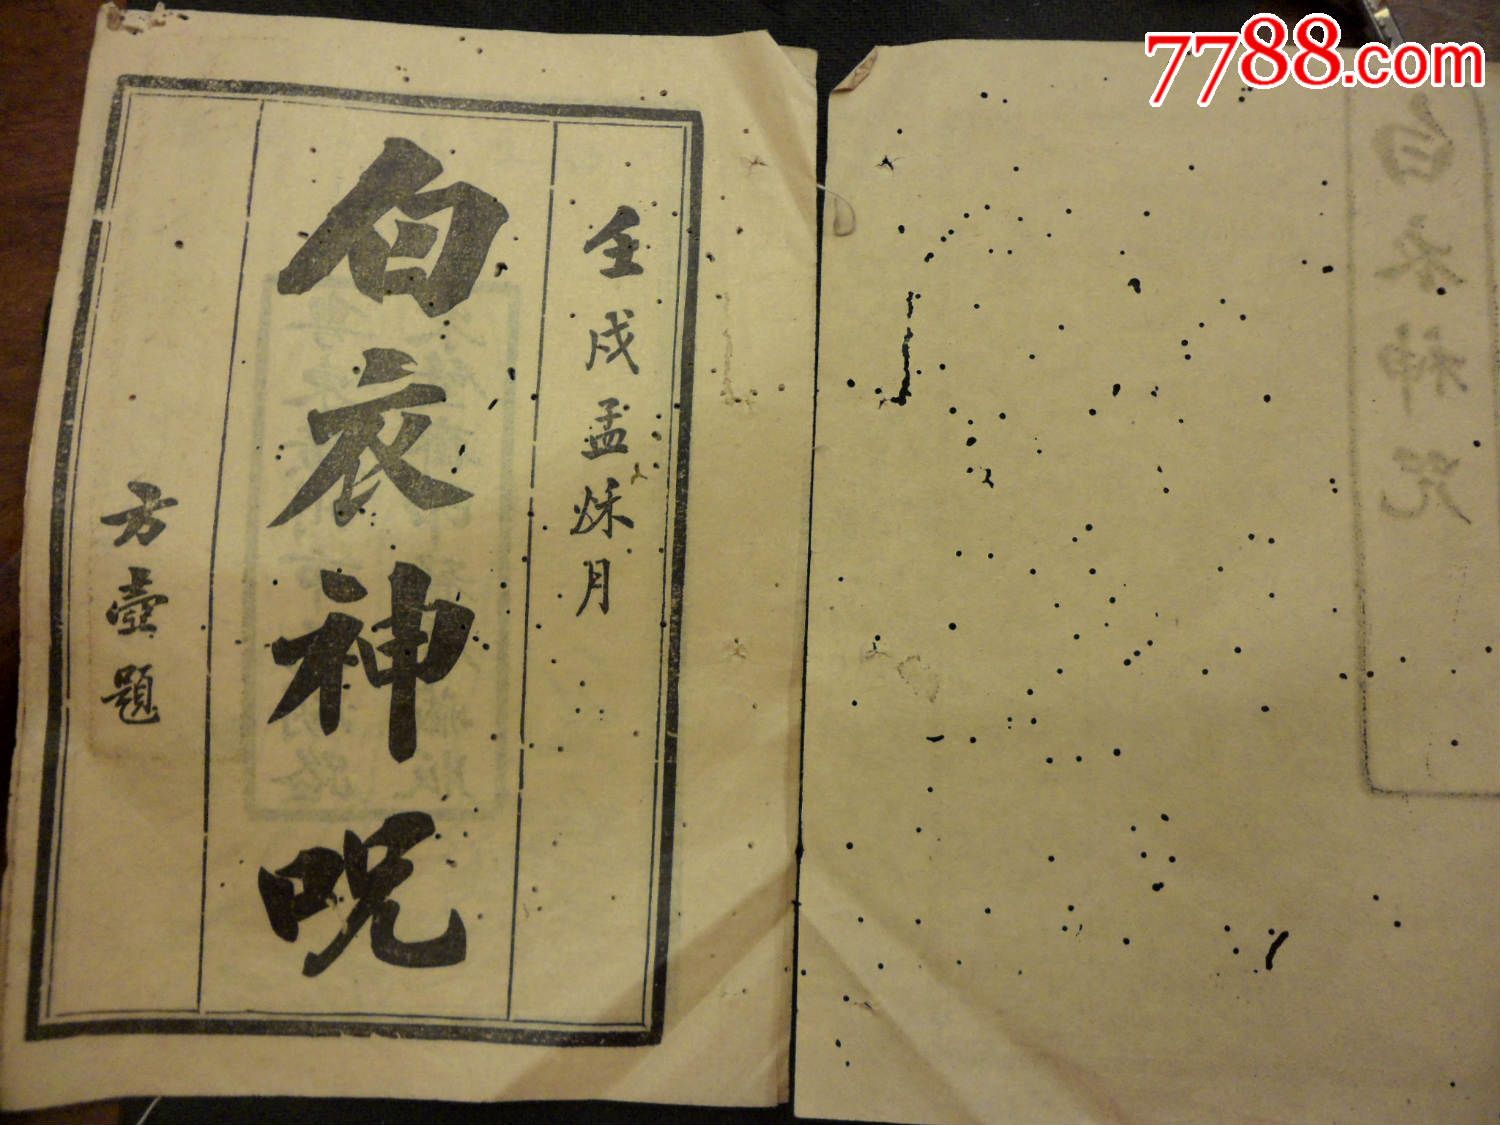 7788.com
壬戌孟秌月
白衣神咒
方壺題
白衣神咒